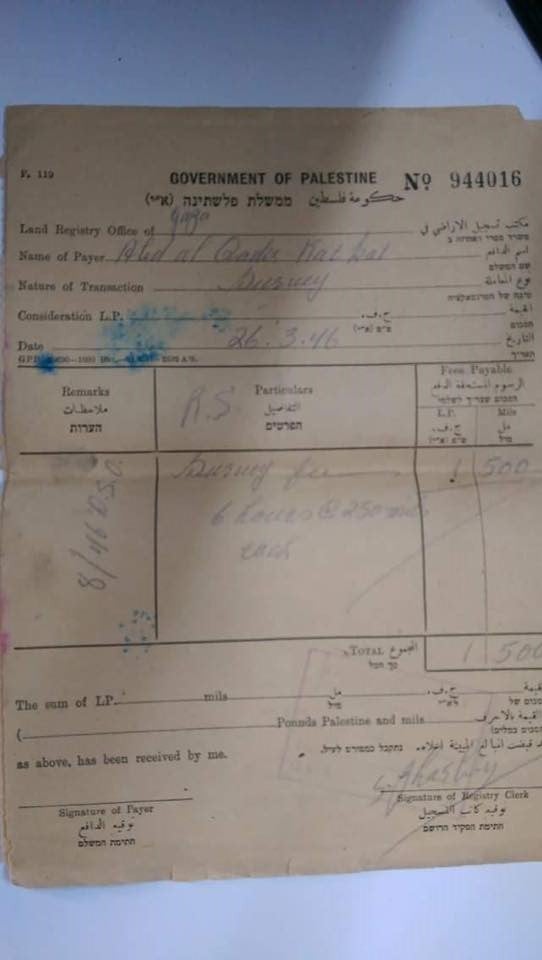 F. 119
GOVERNMENT OF PALESTINE Nº 944016
حكومة فلسطين ממשלת פלשתינה (א״י)
Land Registry Office of Gaza مكتب تسجيل الاراضي في
Name of Payer Abd al Qader اسم الدافع
שם המשלם
Nature of Transaction Survey نوع المعاملة
Consideration L.P. ج.ف. القيمة
הסכום
Date 26.3.46 التاريخ
תאריך
Fees Payable
الرسوم المستحقة الدفع
Remarks R.S. Particulars L.P. Mils
ملاحظات التفاصيل ج.ف. مل
הערות הפרטים מיל
Survey fee 1 500
6 hours @ 250 mils
each
8/46 D.S.O
TOTAL المجموع 1 500
סך הכל
The sum of L.P. mils مل ج.ف. القيمة
מיל לא״י הסכום של
( Pounds Palestine and mils القيمة بالاحرف
as above, has been received by me. נתקבל כמפורט לעיל.
Signature of Payer Signature of Registry Clerk
توقيع الدافع توقيع كاتب التسجيل
חתימת המשלם חתימת הפקיד הרושם